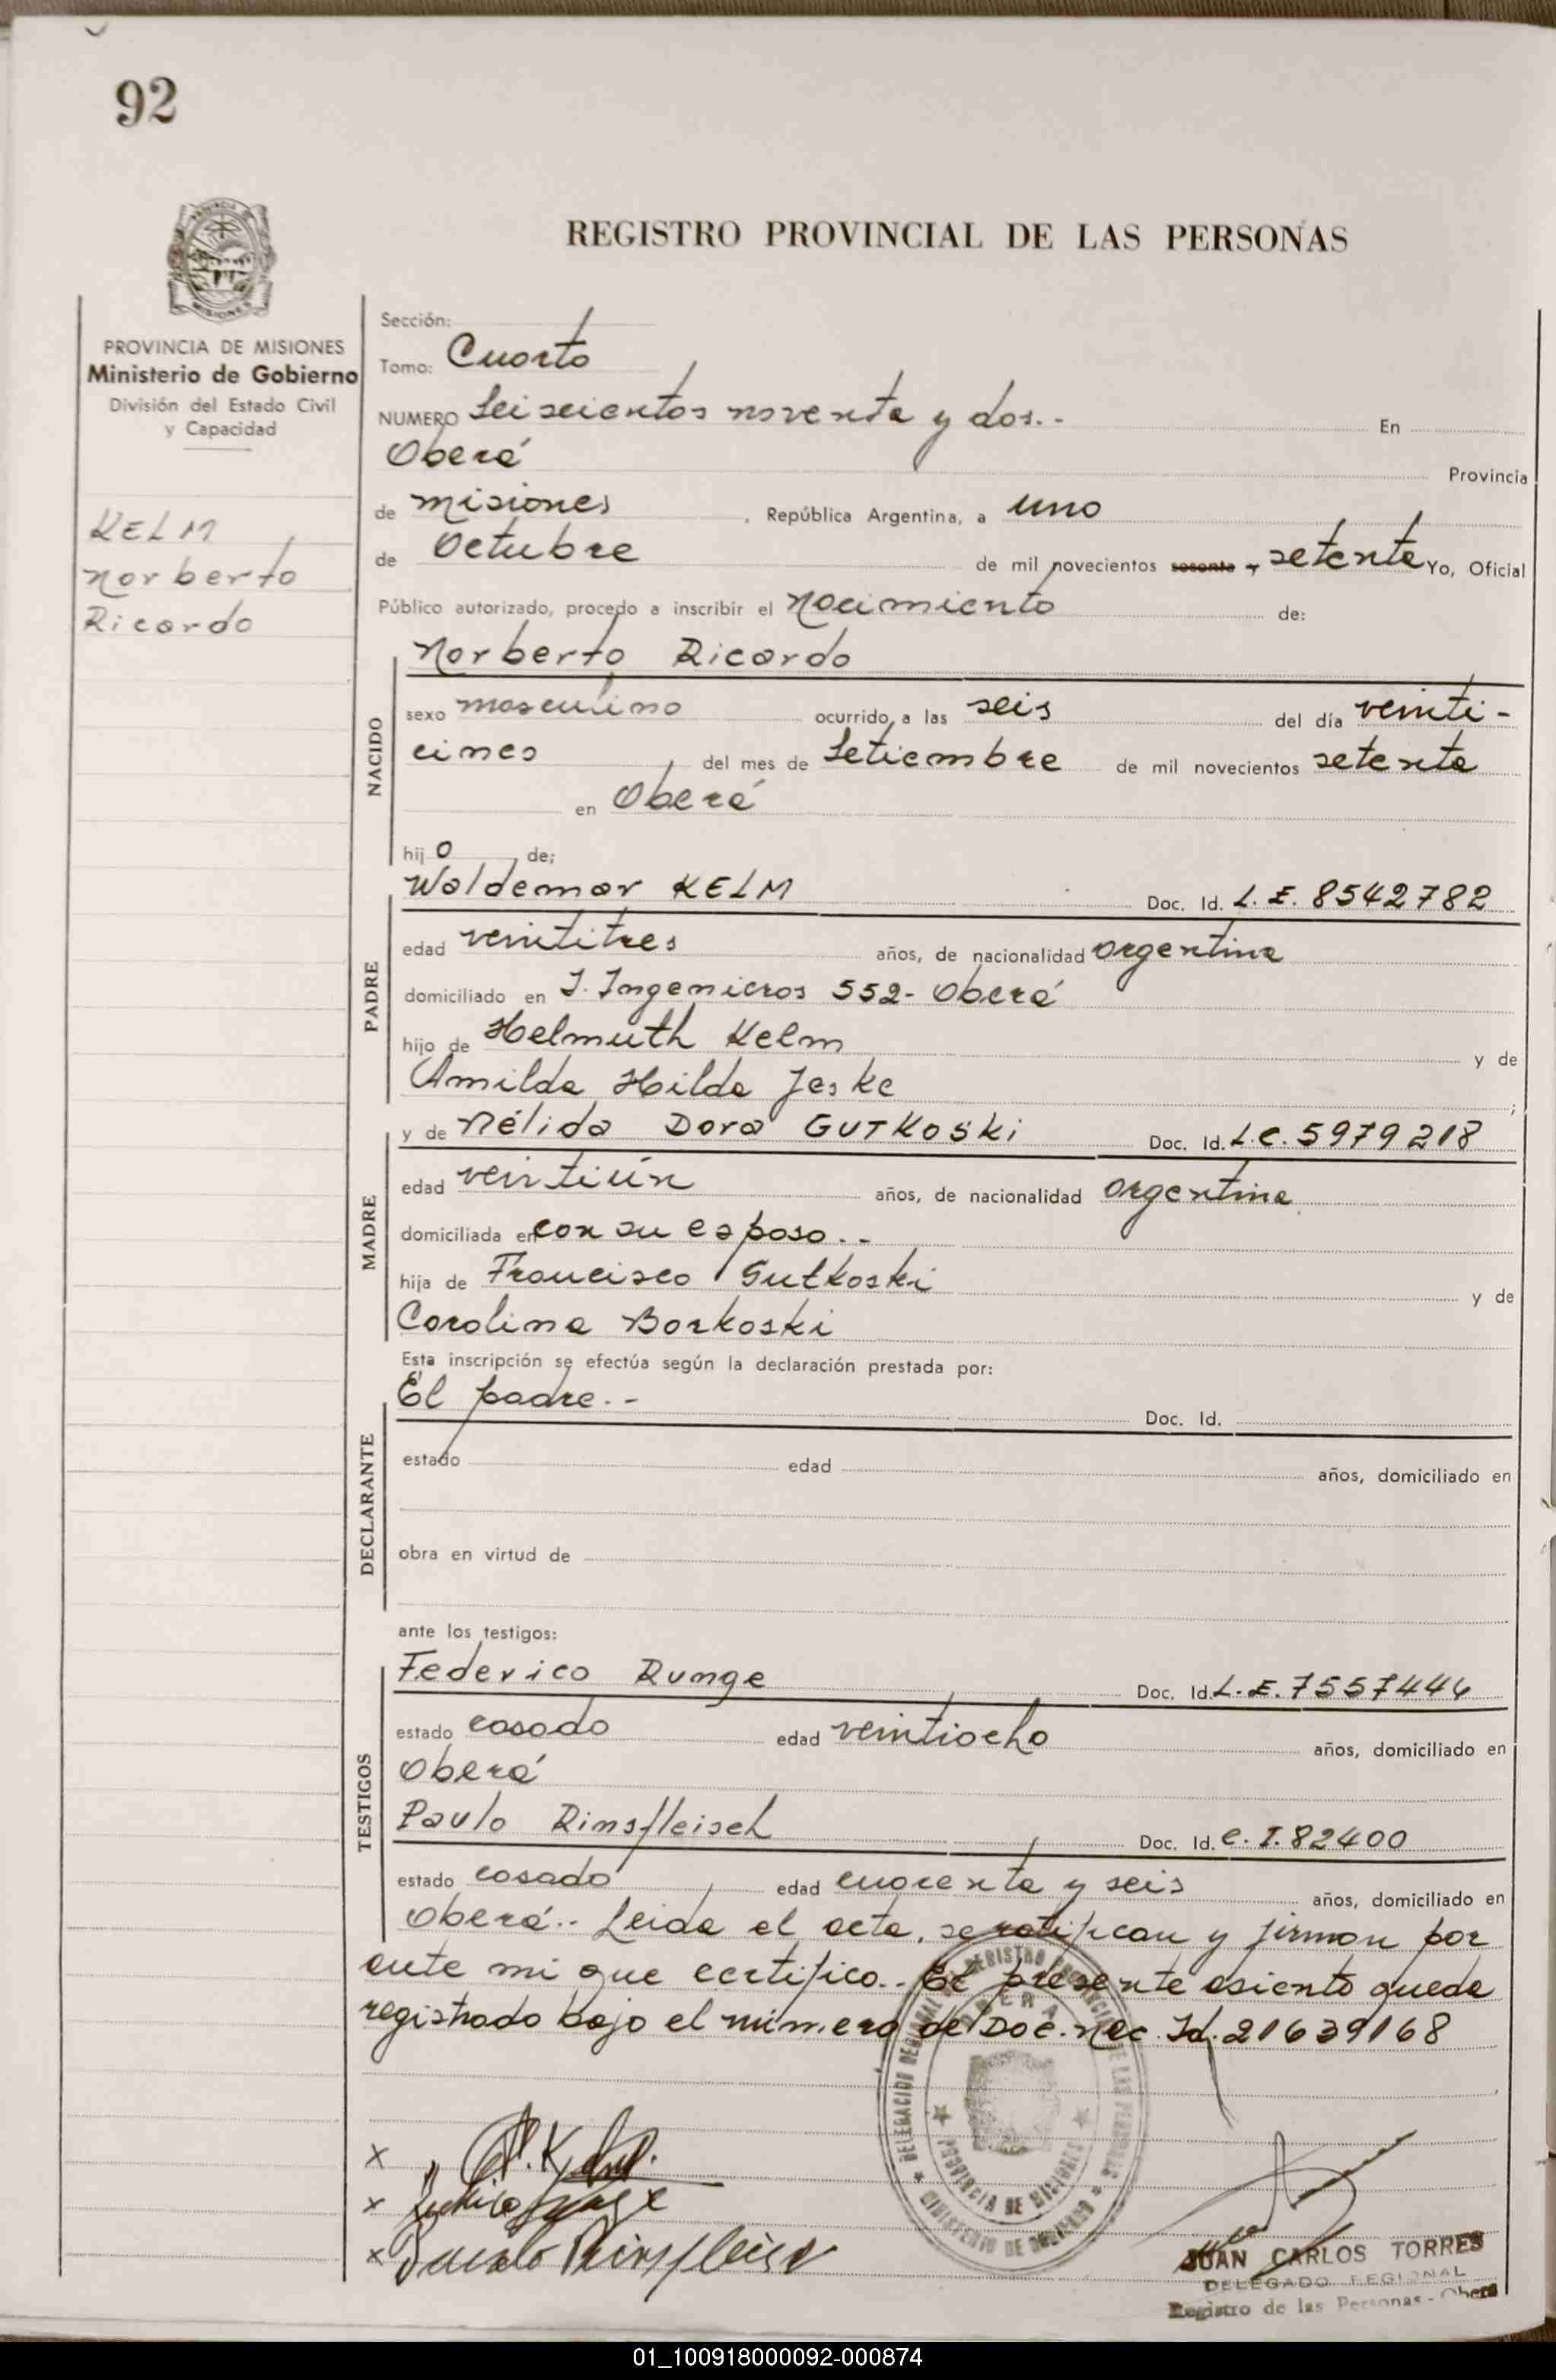 92
REGISTRO PROVINCIAL DE LAS PERSONAS
PROVINCIA DE MISIONES
Ministerio de Gobierno
División del Estado Civil
y Capacidad
KELM
Norberto
Ricardo
Sección:
Tomo: Cuarto
NUMERO Seiscientos noventa y dos.- En
Oberá Provincia
de Misiones, República Argentina, a uno
de Octubre de mil novecientos sesenta y setenta Yo, Oficial
Público autorizado, procedo a inscribir el Nacimiento de:
NACIDO
Norberto Ricardo
sexo masculino ocurrido a las seis del día veinti-
cinco del mes de Setiembre de mil novecientos setenta
en Oberá
hijo de:
PADRE
Waldemar KELM Doc. Id. L.E. 8542782
edad veintitres años, de nacionalidad argentina
domiciliado en J. Ingenieros 552- Oberá
hijo de Helmuth Kelm y de
Amilda Hilda Jeske ;
MADRE
y de Nélida Dora GUTKOSKI Doc. Id. L.C. 5979218
edad veintiún años, de nacionalidad argentina
domiciliada en con su esposo.-
hija de Francisco Gutkoski y de
Carolina Borkoski
Esta inscripción se efectúa según la declaración prestada por:
DECLARANTE
El padre.- Doc. Id.
estado edad años, domiciliado en
obra en virtud de
ante los testigos:
TESTIGOS
Federico Runge Doc. Id. L.E. 7557444
estado casado edad veintiocho años, domiciliado en
Oberá
Paulo Rinsfleisch Doc. Id. C.I. 82400
estado casado edad cuarenta y seis años, domiciliado en
Oberá.- Leida el acta, se ratifican y firman por
ante mi que certifico.- El presente asiento queda
registrado bajo el número de Doc. Nac. Id. 21639168
DELEGACION REGIONAL DEL REGISTRO PROVINCIAL DE LAS PERSONAS
OBERA
PROVINCIA DE MISIONES
MINISTERIO DE GOBIERNO
x
x
x Paulo Rinsfleisch
JUAN CARLOS TORRES
DELEGADO REGIONAL
Registro de las Personas - Oberá
01_100918000092-000874